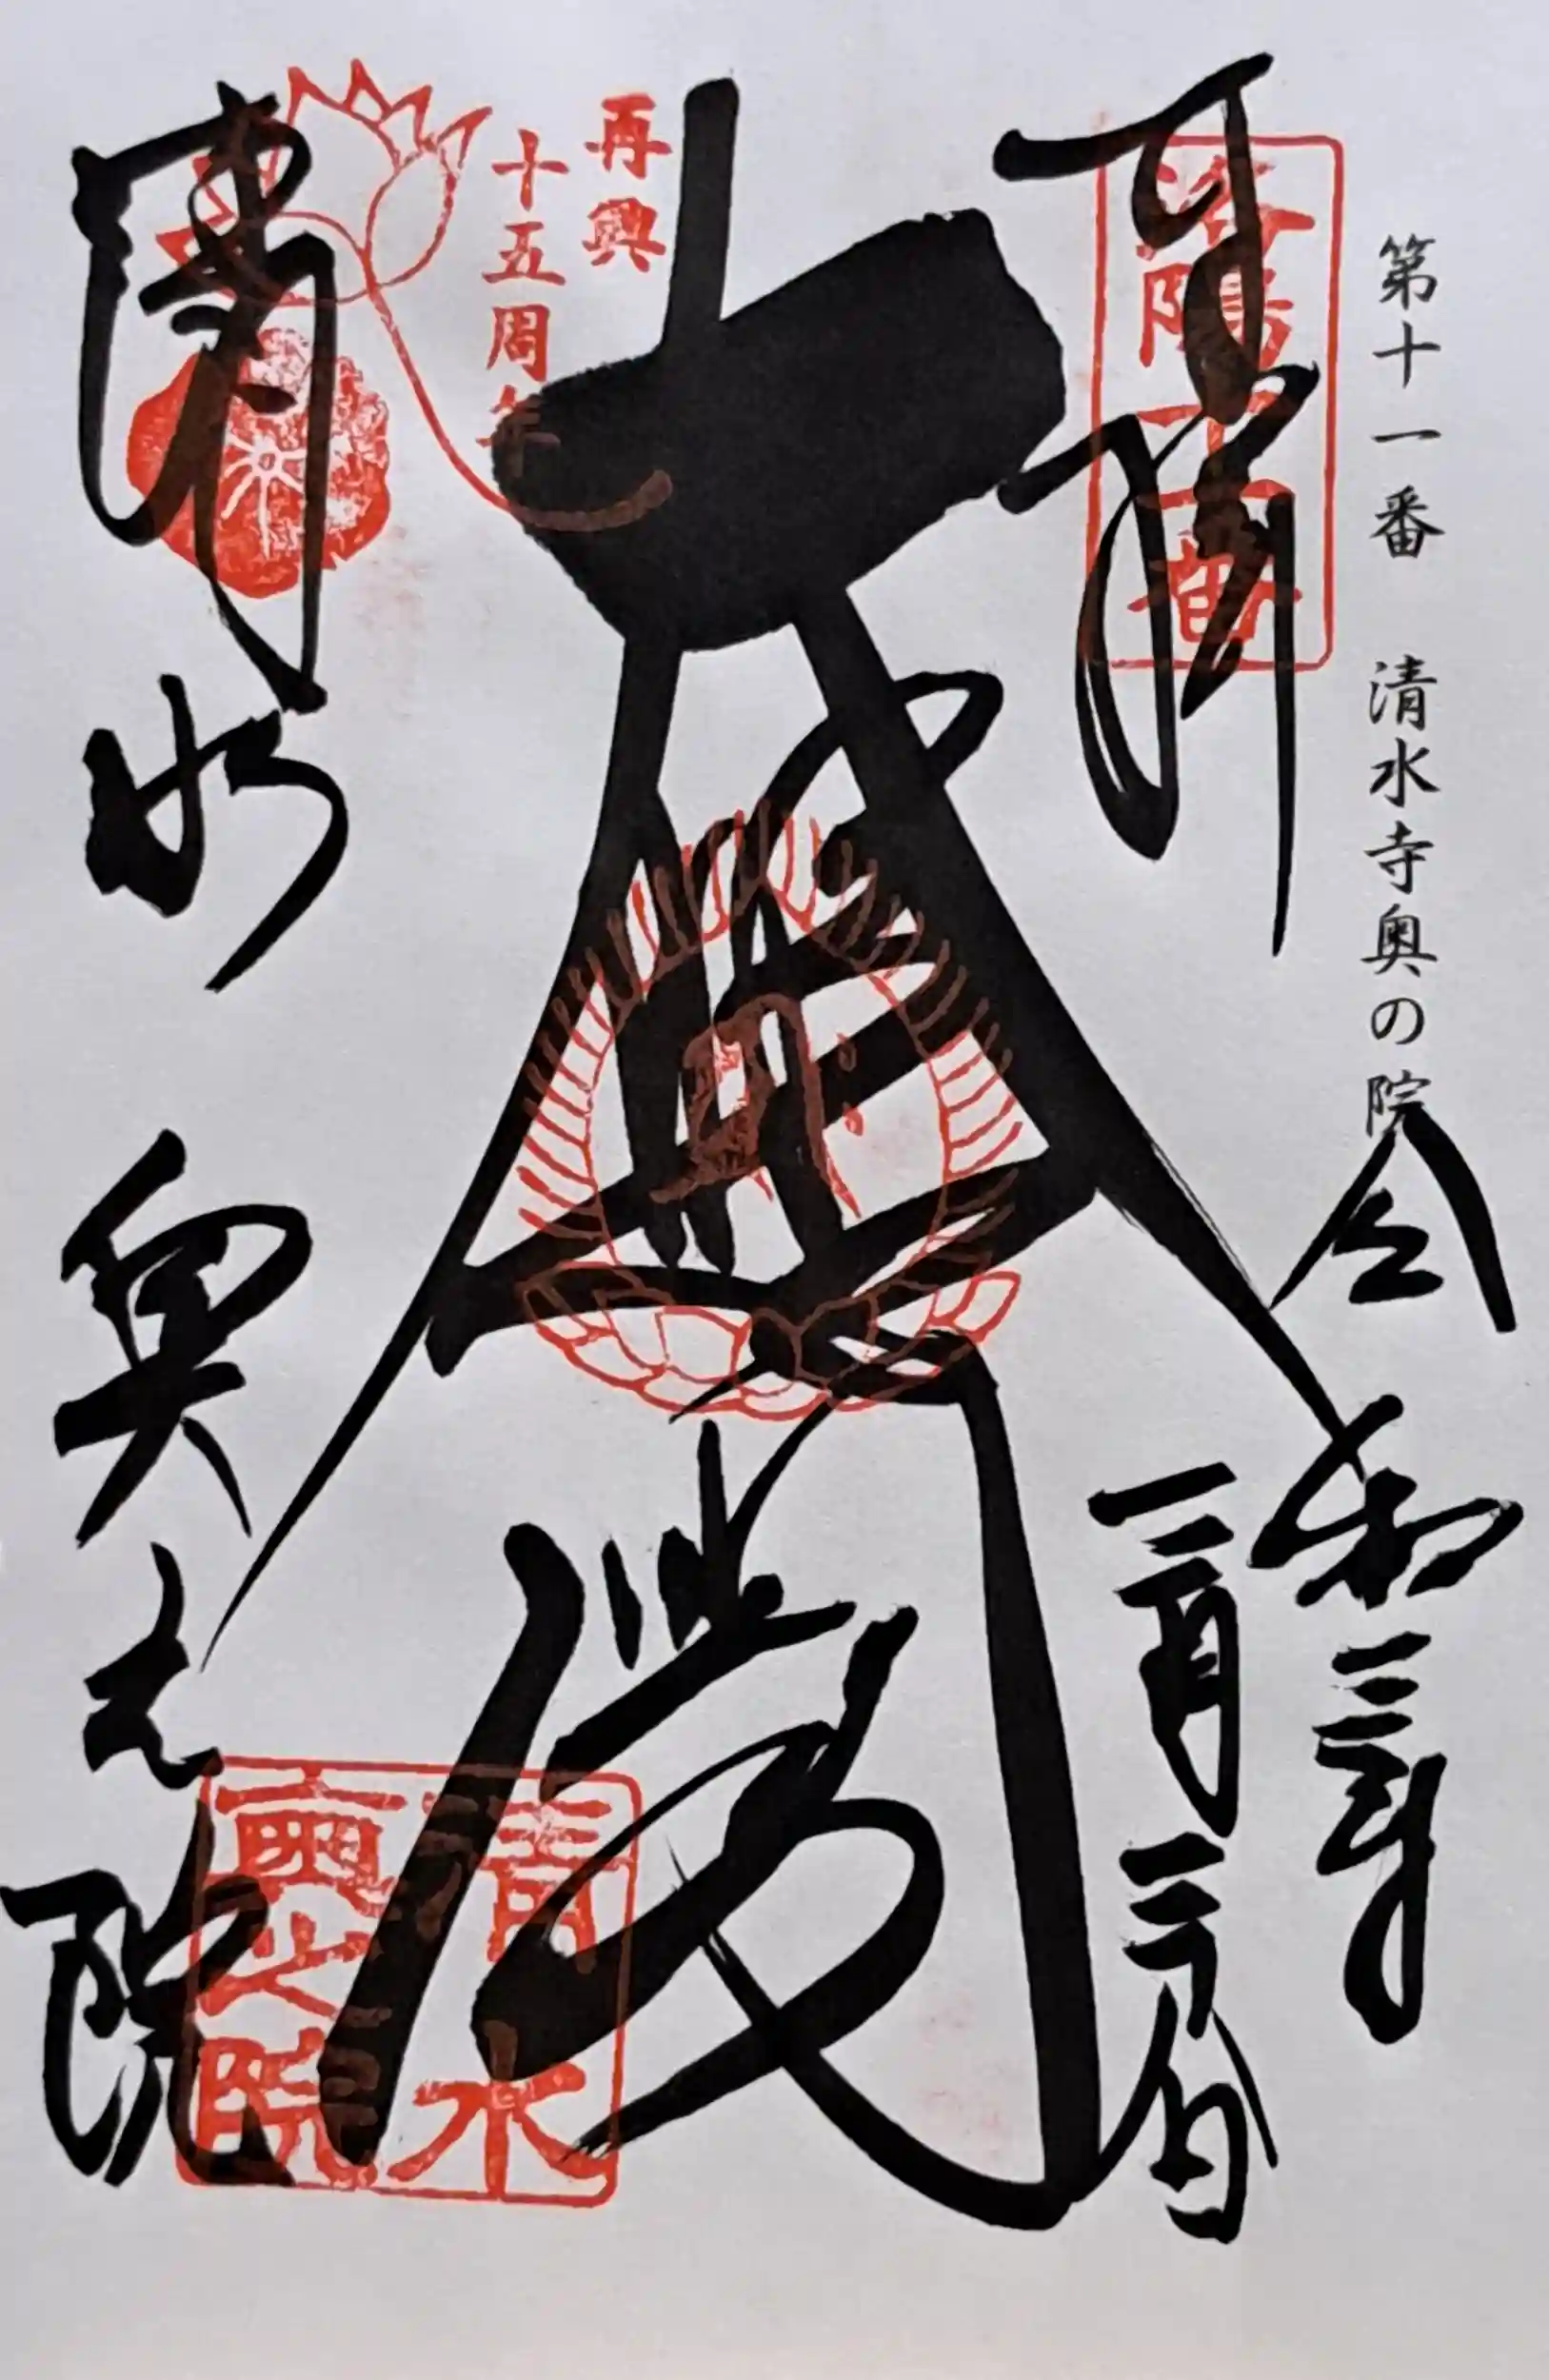 第十一番 清水寺奥の院
令和三年
三月三十一日
奉拝
洛陽十一番
大悲閣
再興
十五周年
清水
奥之院
清水
奥之院